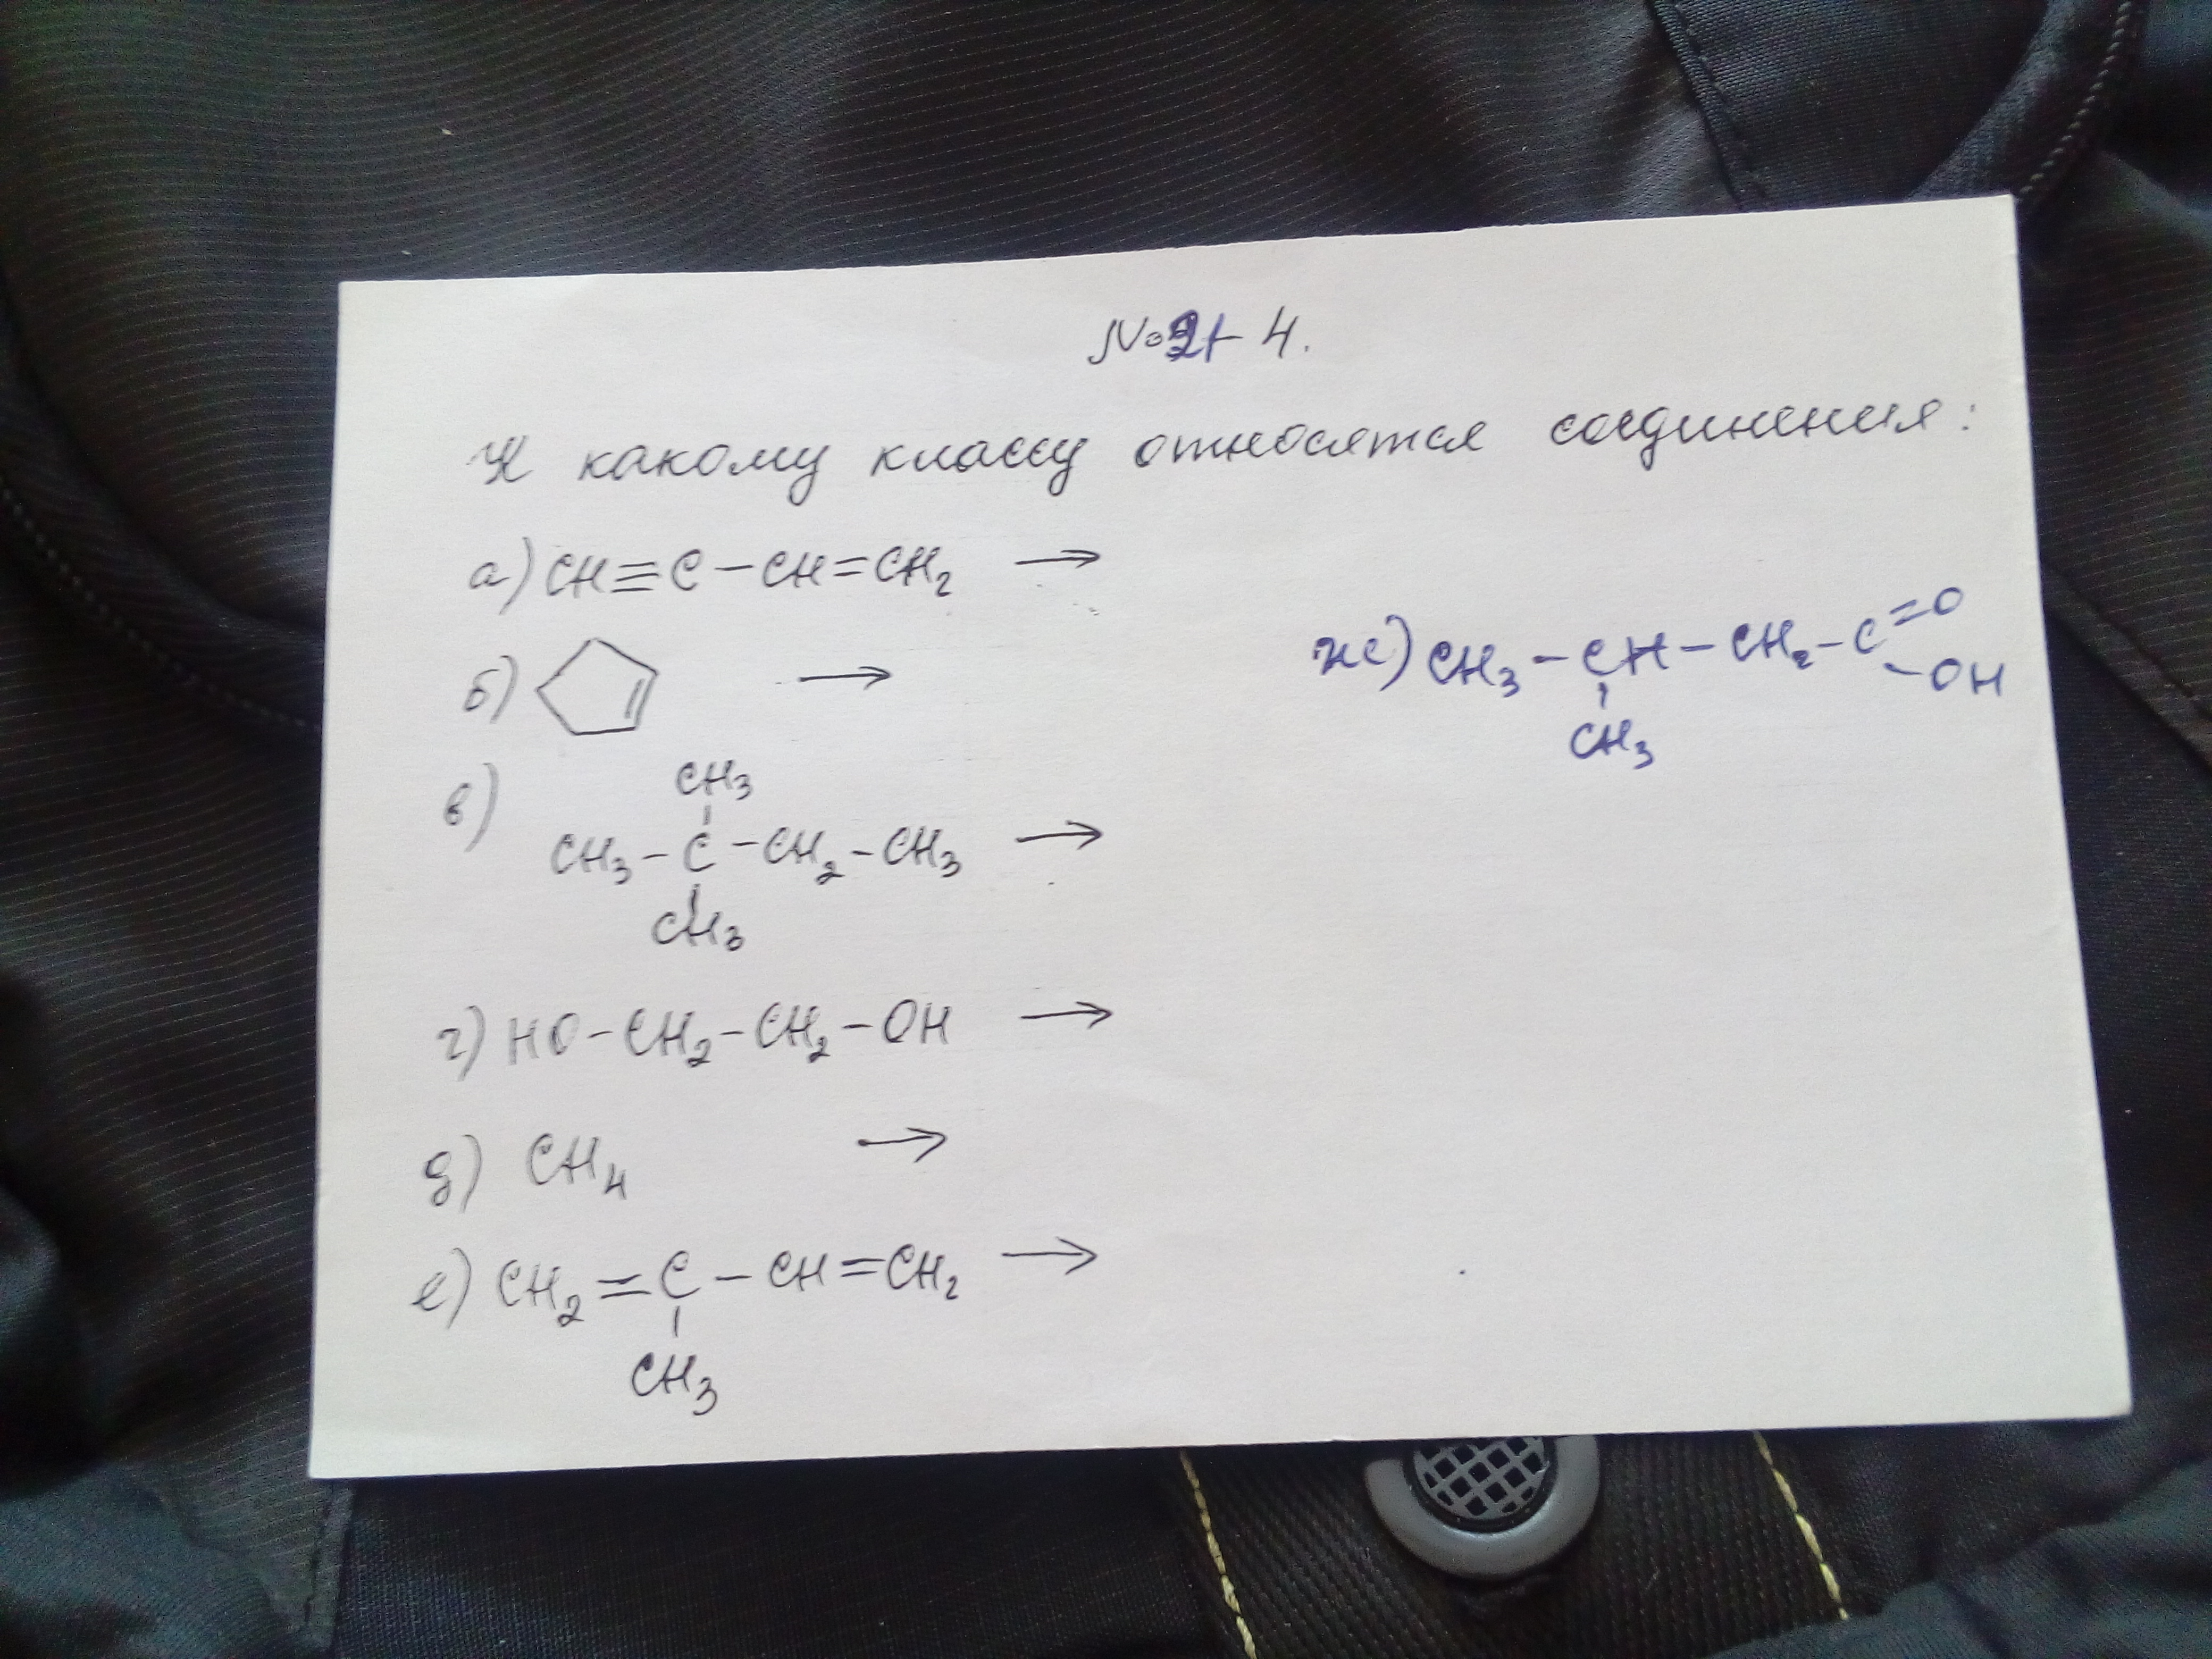 К какому классу относятся соединения:
а) CH≡C-CH=CH₂ →
б) →
в)
CH₃
CH₃-C-CH₂-CH₃ →
CH₃
г) HO-CH₂-CH₂-OH →
д) CH₄ →
е) CH₂=C-CH=CH₂ →
CH₃
ж) CH₃-CH-CH₂-C=O
-OH
CH₃